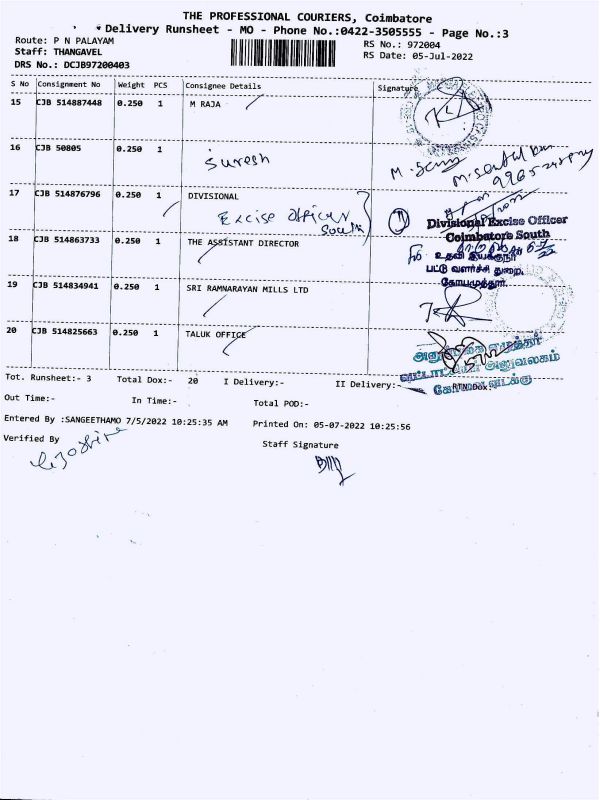 THE PROFESSIONAL COURIERS, Coimbatore
Delivery Runsheet - MO - Phone No.:0422-3505555 - Page No.:3
Route: P N PALAYAM
RS No.: 972004
Staff: THANGAVEL
RS Date: 05-Jul-2022
DRS No.: DCJB97200403
S No Consignment No Weight PCS Consignee Details Signature
15 CJB 514887448 0.250 1 M RAJA
16 CJB 50805 0.250 1 Suresh
17 CJB 514876796 0.250 1 DIVISIONAL
Excise Officer
South
Divisional Excise Officer
Coimbatore South
18 CJB 514863733 0.250 1 THE ASSISTANT DIRECTOR
உதவி இயக்குநர்
பட்டு வளர்ச்சி துறை,
கோயமுத்தூர்.
19 CJB 514834941 0.250 1 SRI RAMNARAYAN MILLS LTD
20 CJB 514825663 0.250 1 TALUK OFFICE
Tot. Runsheet:- 3 Total Dox:- 20 I Delivery:- II Delivery:- RTN Dox:
Out Time:- In Time:- Total POD:-
Entered By :SANGEETHAMO 7/5/2022 10:25:35 AM Printed On: 05-07-2022 10:25:56
Verified By
Staff Signature